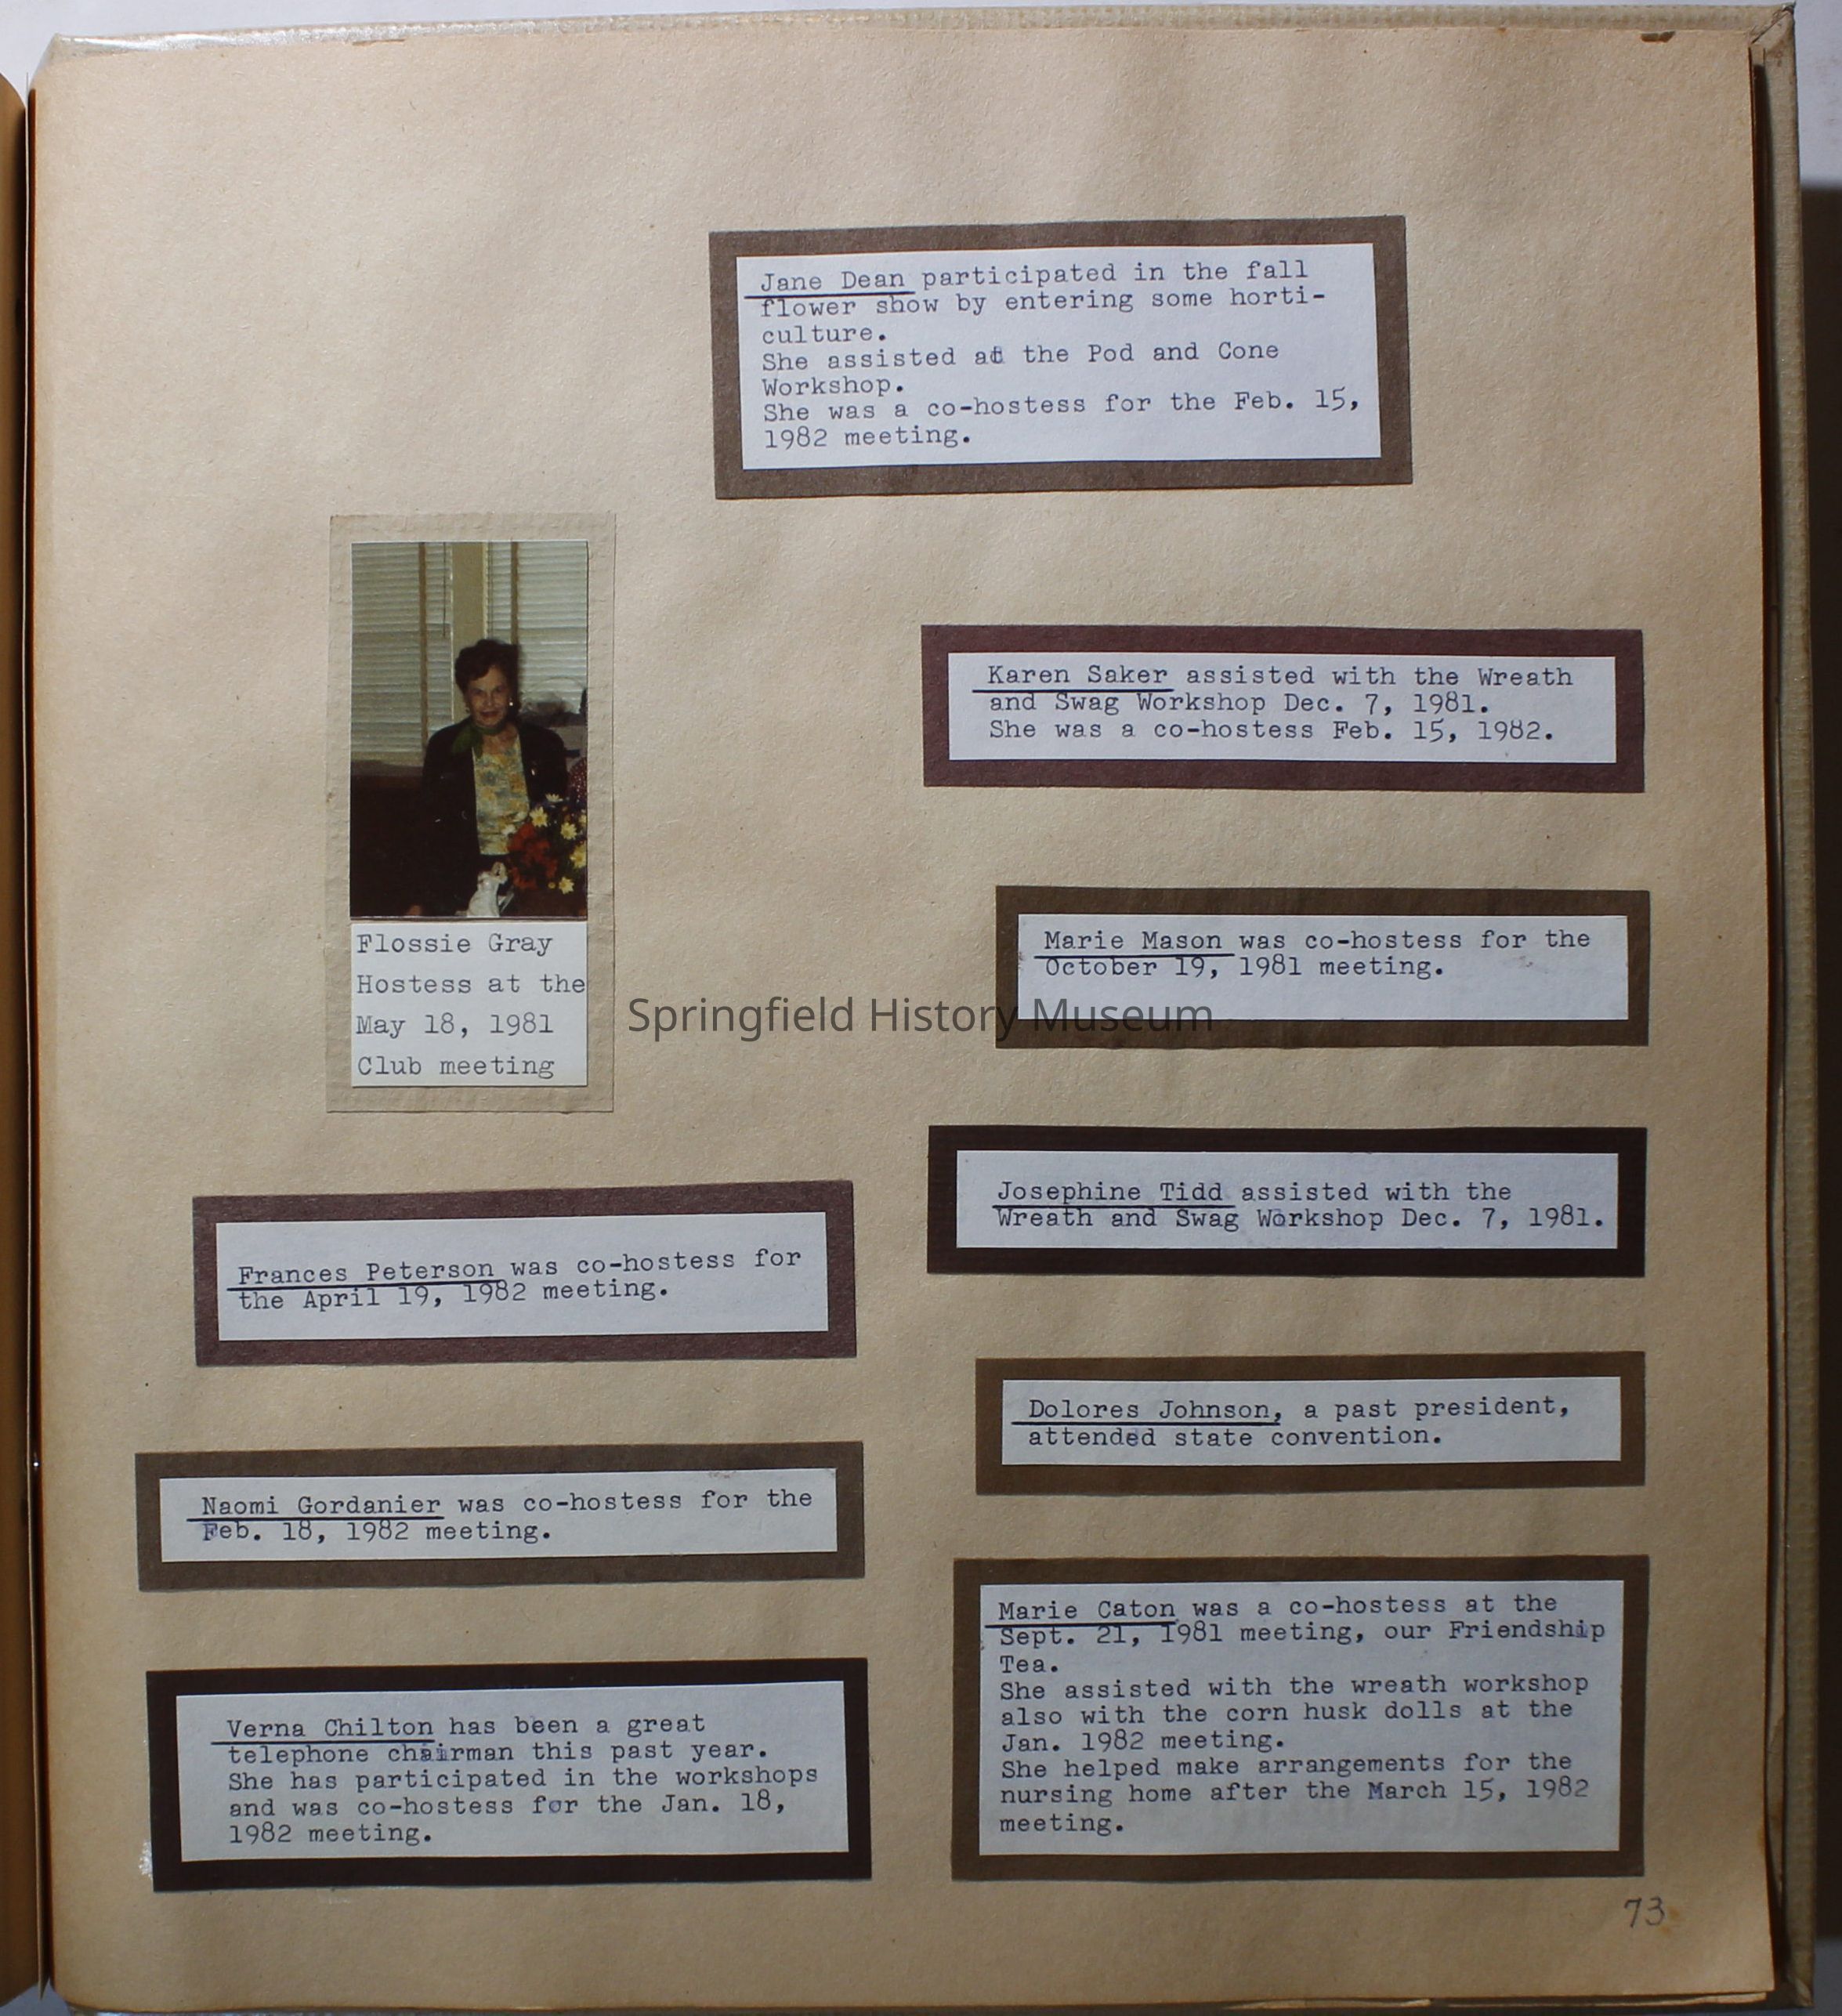 Jane Dean participated in the fall
flower show by entering some horti-
culture.
She assisted at the Pod and Cone
Workshop.
She was a co-hostess for the Feb. 15,
1982 meeting.
Flossie Gray
Hostess at the
May 18, 1981
Club meeting
Karen Saker assisted with the Wreath
and Swag Workshop Dec. 7, 1981.
She was a co-hostess Feb. 15, 1982.
Marie Mason was co-hostess for the
October 19, 1981 meeting.
Springfield History Museum
Josephine Tidd assisted with the
Wreath and Swag Workshop Dec. 7, 1981.
Frances Peterson was co-hostess for
the April 19, 1982 meeting.
Dolores Johnson, a past president,
attended state convention.
Naomi Gordanier was co-hostess for the
Feb. 18, 1982 meeting.
Marie Caton was a co-hostess at the
Sept. 21, 1981 meeting, our Friendship
Tea.
She assisted with the wreath workshop
also with the corn husk dolls at the
Jan. 1982 meeting.
She helped make arrangements for the
nursing home after the March 15, 1982
meeting.
Verna Chilton has been a great
telephone chairman this past year.
She has participated in the workshops
and was co-hostess for the Jan. 18,
1982 meeting.
73